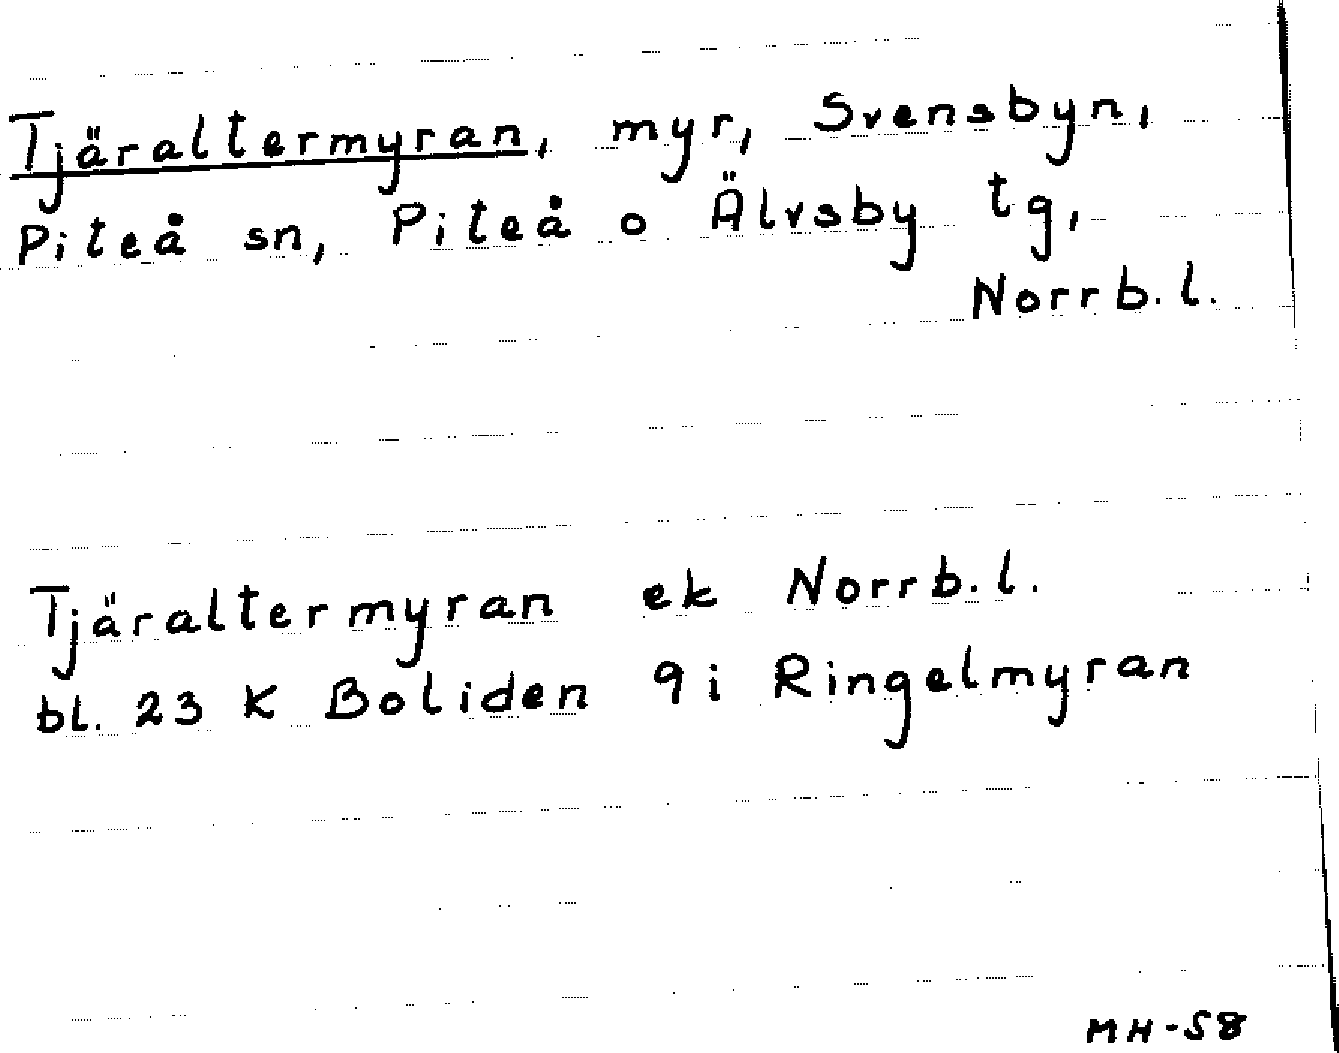 Tjäraltermyran, myr, Svensbyn,
Piteå sn, Piteå o Älvsby tg,
Norrb. l.
Tjäraltermyran ek Norrb. l.
bl. 23 K Boliden 9i Ringelmyran
MH-58